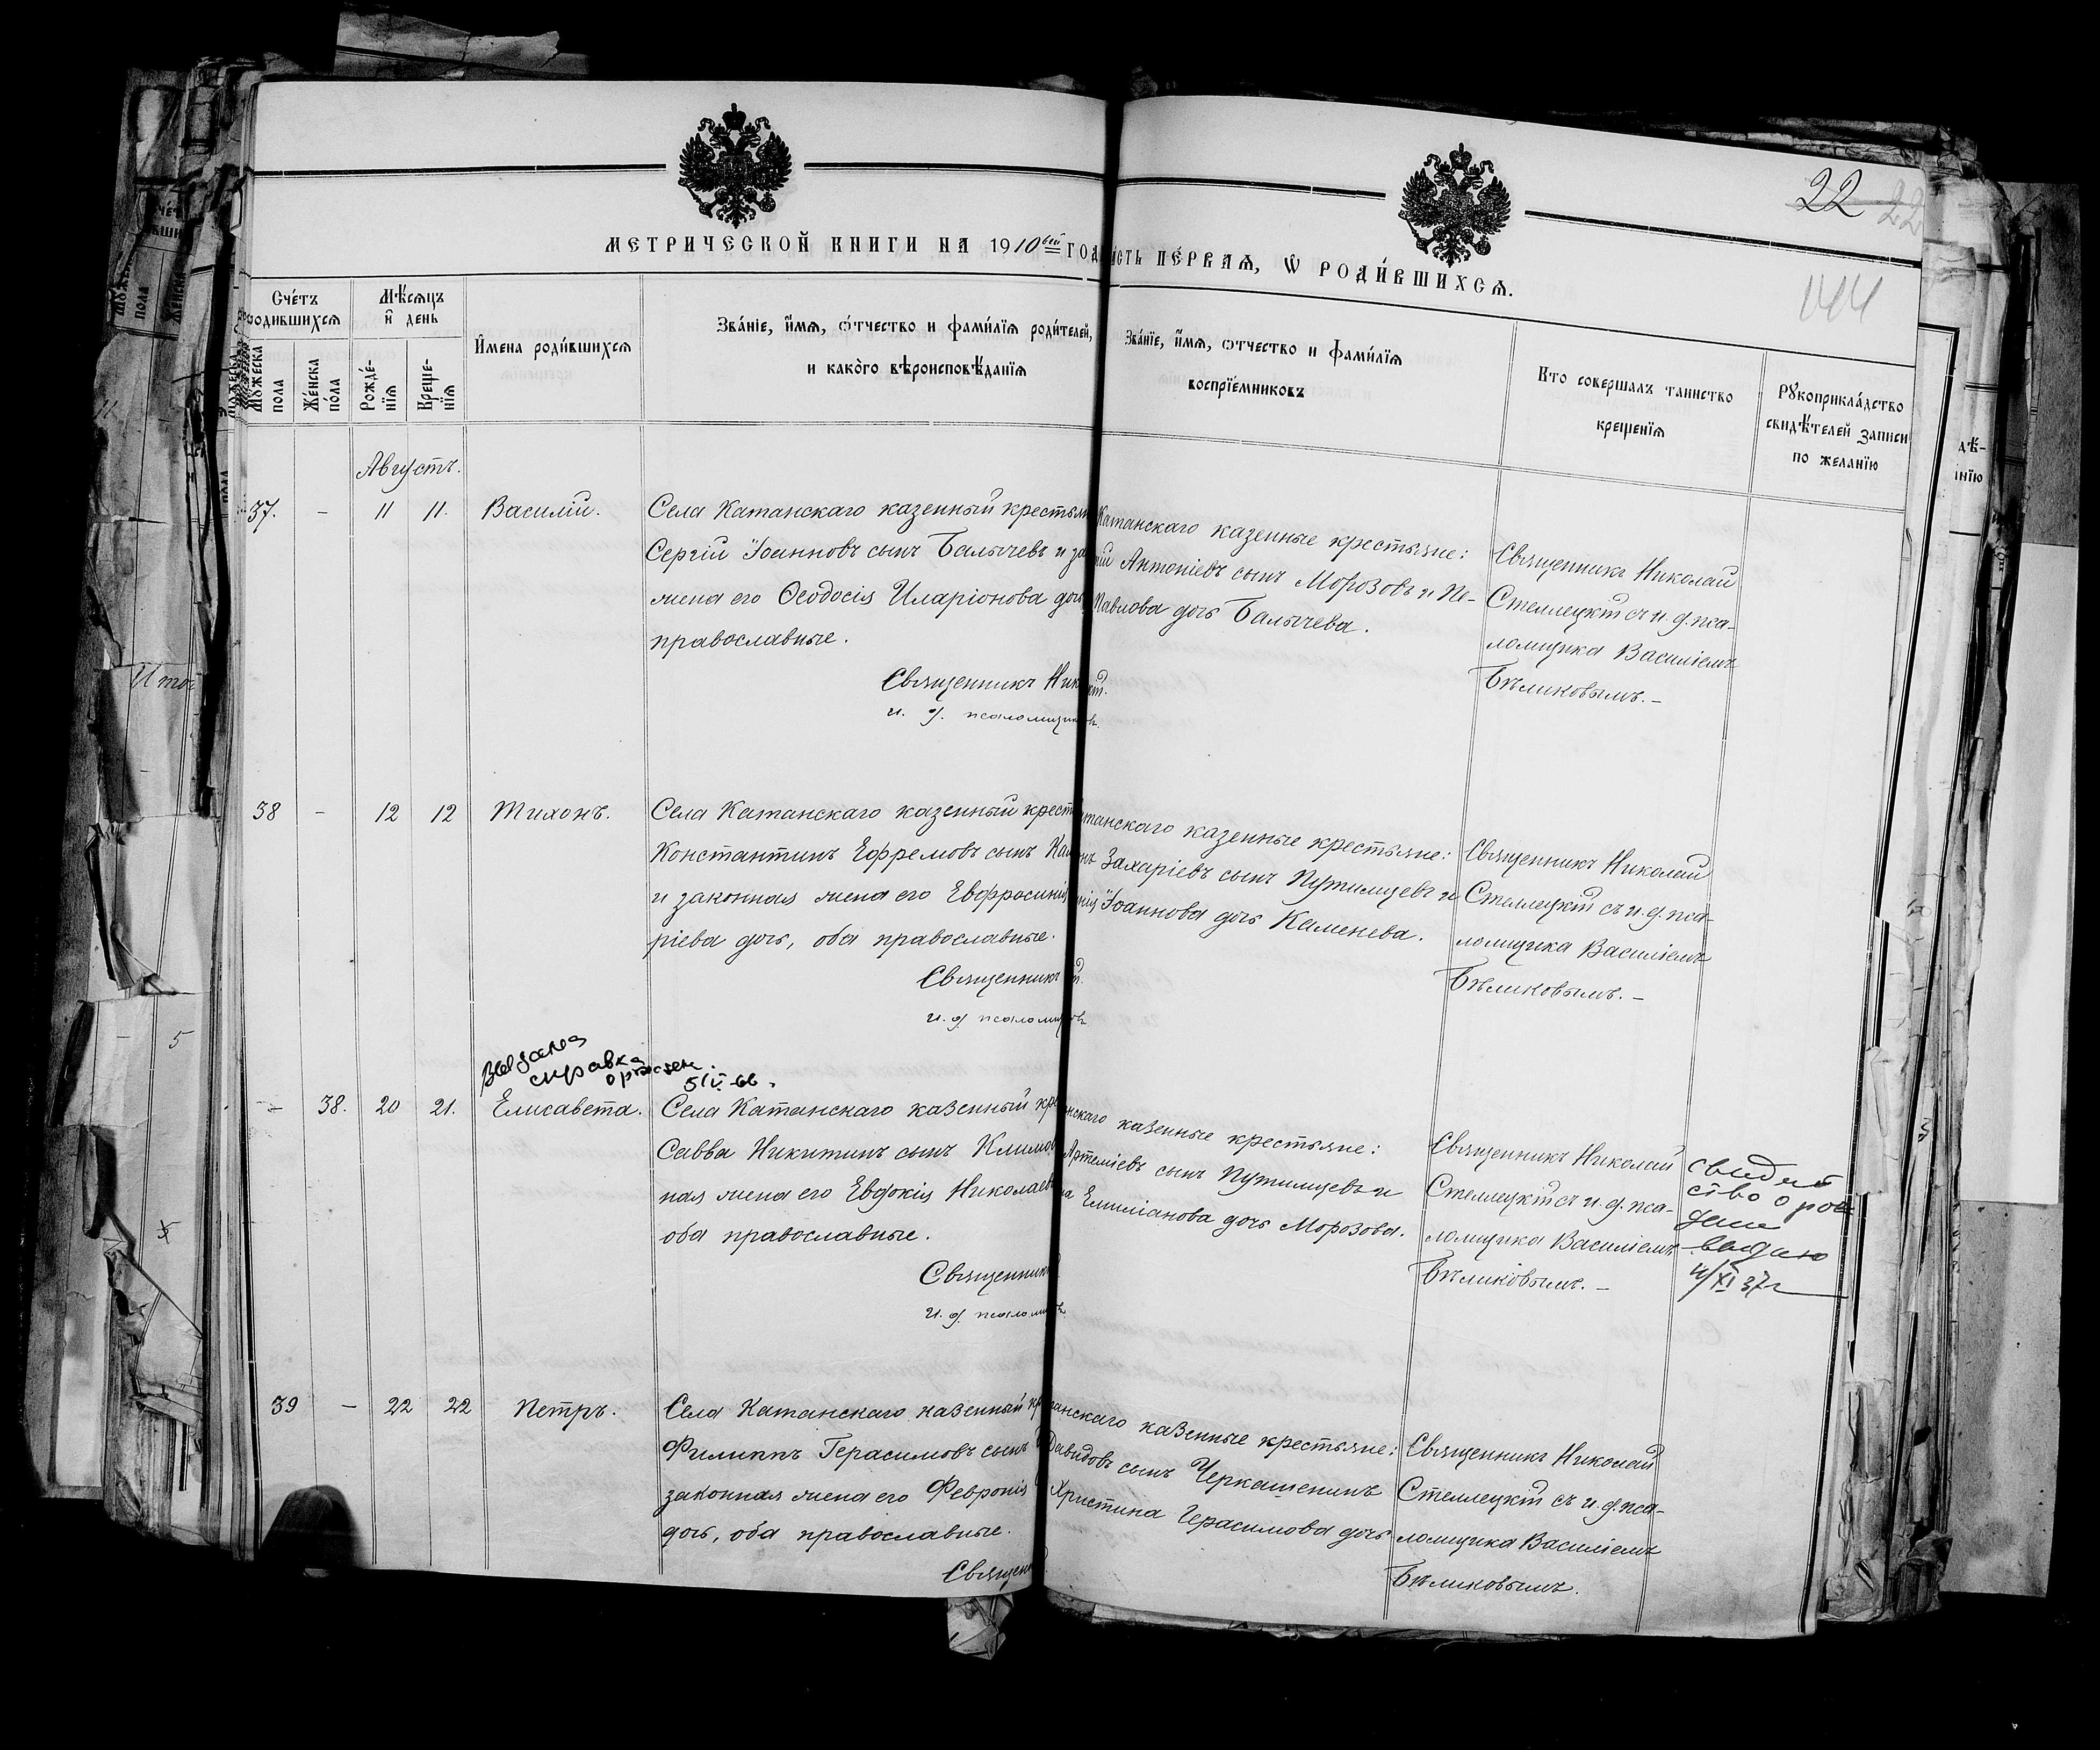 22 22
144
МЕТРИЧЕСКОЙ КНИГИ НА 1910ый ГОД
СТЬ ПЕ́РВАЯ, Ѡ РОДИ́ВШИХСЯ.
Сче́тъ
родившихся
Мꙋжеска
пола
Же́нска
по́ла
Мѣ́сяцъ
и҆ день
Рожде́-
нїя
Креще-
нїя
И҆мена роди́вшихся
Зва́нїе, и҆́мя, ѻ҆́тчество и фами́лїя роди́телей,
и како́го вѣроисповѣ́данїя
Зва́нїе, и҆́мя, ѻтчество и фами́лїя
воспрїе́мниковъ
Кто совершалъ таинство
крещенїя
Рꙋкоприкла́дство
свидѣ́телей записи
по желанїю
Августъ.
37. - 11 11. Василій.
Села Катанскаго казенный крестьян
Сергій Іоанновъ сынъ Балычевъ и за
жена его Ѳеодосія Иларіонова дочь,
православные.
Священникъ Ник
и. д. псаломщик
Катанскаго казенные крестьяне:
ій Антоніевъ сынъ Морозовъ и Пе-
Павлова дочь Балычева.
Священникъ Николай
Стеллецкій съ и. д. пса-
ломщика Василіемъ
Бѣликовымъ. -
38 - 12 12 Тихонъ.
Села Катанскаго казенный крест
Константинъ Ефремовъ сынъ Кам
и законная жена его Евфросинія
ріева дочь, оба православные.
Священникъ
и. д. псаломщ
танскаго казенные крестьяне:
нъ Захаріевъ сынъ Путимцевъ и
нія Іоаннова дочь Каменева.
Священникъ Николай
Стеллецкій съ и. д. пса-
ломщика Василіемъ
Бѣликовымъ. -
Выдана
справка
о рожден.
5/V-66.
- 38. 20 21. Елисавета.
Села Катанскаго казенный кре
Савва Никитинъ сынъ Климов
ная жена его Евдокія Николаев
оба православные.
Священник
и. д. псалом
нскаго казенные крестьяне:
Артеміевъ сынъ Путимцевъ и
на Емиліанова дочь Морозова.
Священникъ Николай
Стеллецкій съ и. д. пса-
ломщика Василіемъ
Бѣликовымъ. -
свидет
ство о рож
дени
выдано
4/XI 37г
39 - 22 22 Петръ.
Села Катанскаго казенный кр
Филиппъ Герасимовъ сынъ
законная жена его Февронія
дочь, оба православные.
Священ
анскаго казенные крестьяне:
Давидовъ сынъ Черкашенинъ
Христина Герасимова дочь
Священникъ Николай
Стеллецкій съ и. д. пса-
ломщика Василіемъ
Бѣликовымъ.